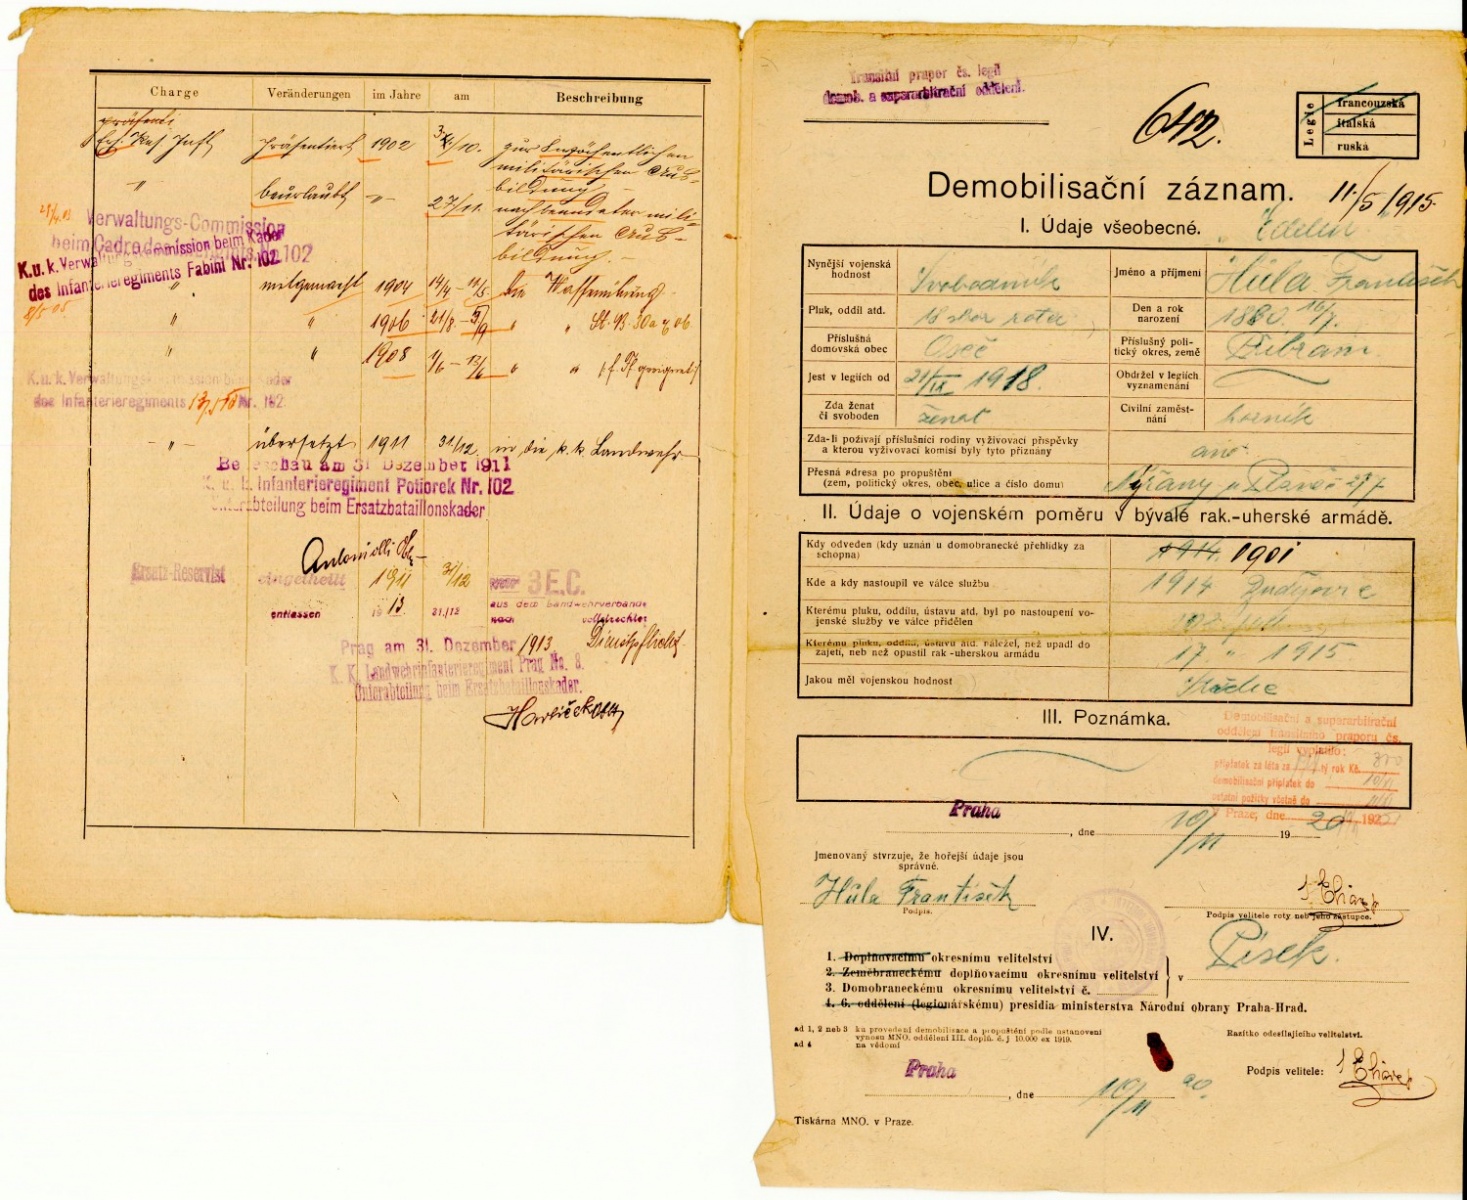 Charge Veränderungen im Jahre am Beschreibung
präsenti
präsentiert 1902 3/10. zur 8wöchentlichen
militärischen Aus-
bildung –
" beurlaubt 27/11. nach beendeter mili-
tärischen Aus-
bildung. –
Verwaltungs-Commission
beim Cadre des Infanterieregiments Nr. 102
K.u.k. Verwaltungskommission beim Kader
des Infanterieregiments Fabini Nr. 102.
" mitgemacht 1904 14/4 – 11/5 die Waffenübung
" " 1906 21/8 – " "
" " 1908 1/6 – 13/6 " "
K.u.k. Verwaltungskommission beim Kader
des Infanterieregiments Nr. 102
– " – übersetzt 1911 31/12. in die k.k. Landwehr
Bereschau am 31 Dezember 1911
K. u. k. Infanterieregiment Potiorek Nr. 102
Unterabteilung beim Ersatzbataillonskader
Ersatz-Reservist eingeteilt 1911 31/12 3 E.C.
entlassen 1913. 31/12 aus dem Landwehrverbande
nach vollstreckter
Dienstpflicht.
Prag am 31. Dezember 1913
K. K. Landwehrinfanterieregiment Prag No. 8.
Unterabteilung beim Ersatzbataillonskader.
Transitní prapor čs. legií
domob. a superarbitrační oddělení.
Legie
francouzská
italská
ruská
Demobilisační záznam. 11./5 1915.
I. Údaje všeobecné.
Nynější vojenská hodnost Svobodník Jméno a příjmení Hůla František
Pluk, oddíl atd. Den a rok narození 1880 16/7.
Příslušná domovská obec Oseč Příslušný politický okres, země Příbram
Jest v legiích od 21/IX 1918. Obdržel v legiích vyznamenání
Zda ženat či svoboden ženat Civilní zaměstnání horník
Zda-li požívají příslušníci rodiny vyživovací příspěvky
a kterou vyživovací komisí byly tyto přiznány ano.
Přesná adresa po propuštění
(zem, politický okres, obec, ulice a číslo domu) Nýřany u Plzně č 297
II. Údaje o vojenském poměru v bývalé rak.-uherské armádě.
Kdy odveden (kdy uznán u domobranecké přehlídky za
schopna) 1914. 1901
Kde a kdy nastoupil ve válce službu 1914
Kterému pluku, oddílu, ústavu atd. byl po nastoupení vo-
jenské služby ve válce přidělen 102.
Kterému pluku, oddílu, ústavu atd. náležel, než upadl do
zajetí, neb než opustil rak-uherskou armádu 17 " 1915.
Jakou měl vojenskou hodnost
III. Poznámka.
Demobilisační a superarbitrační
oddělení transitního praporu čs.
legií vyplatilo:
příplatek za léta za tý rok Kč.
demobilisační příplatek do
ostatní požitky včetně do
V Praze, dne 192
Praha, dne 10/11 1920
Jmenovaný stvrzuje, že hořejší údaje jsou
správné.
Hůla František
Podpis.
Podpis velitele roty neb jeho zástupce.
IV.
1. Doplňovacímu okresnímu velitelství
2. Zeměbraneckému doplňovacímu okresnímu velitelství
3. Domobraneckému okresnímu velitelství č.
v Písek.
4. 6. oddělení (legionářskému) presidia ministerstva Národní obrany Praha-Hrad.
ad 1, 2 neb 3 ku provedení demobilisace a propuštění podle ustanovení
výnosu MNO. oddělení III. doplň. č. j 10.000 ex 1919.
ad 4 na vědomí
Razítko odesílajícího velitelství.
Praha, dne 10/11 20.
Podpis velitele:
Tiskárna MNO. v Praze.